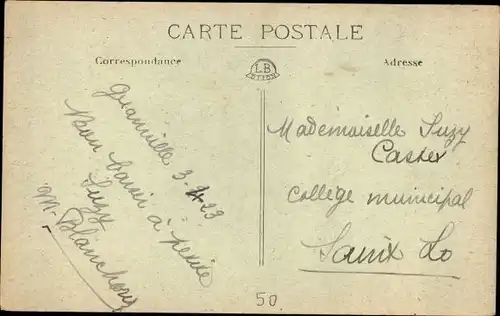 CARTE POSTALE
Correspondance
LB
Adresse
Granville 3-4-23
Bon baiser à petite
Suzy
M. Blanchon
Mademoiselle Suzy
Casrex
collège municipal
Sainx Lo
50